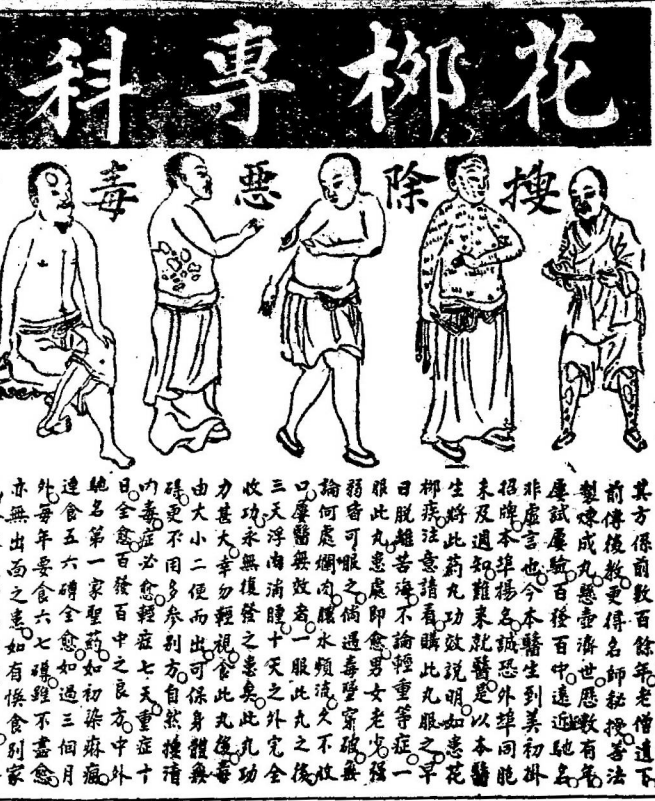 花栁專科
搜除惡毒
其方係前數百餘年老僧遺下
前傳後教更得名師秘授善法
製煉成丸懸壺濟世歷數有年
屢試屢驗百發百中遠近馳名
非虛言也今本醫生到美初掛
招牌本埠揚名誠恐外埠同胞
未及週知難來就醫是以本醫
生將此葯丸功效説明如患花
栁疾注意請看購此丸服之早
日脫離苦海不論輕重等症一
服此丸患處即愈男女老少强
弱皆可服之倘遇毒瘡穿破無
論何處爛肉膿水頻流久不收
口屢醫無效者一服此丸之後
三天浮肉消腫十天之外完全
收功永無復發之患矣此丸功
力甚大幸勿輕視食此丸後毒
由大小二便而出可保身體無
碍更不用多参别方自然掃清
內毒症必愈輕症七天重症十
日全愈百發百中之良方中外
馳名第一家聖葯如初染痳瘋
連食五六 全愈如過三個月
外每年要食六七 雖不盡愈
亦無出面之患如有悞食别家